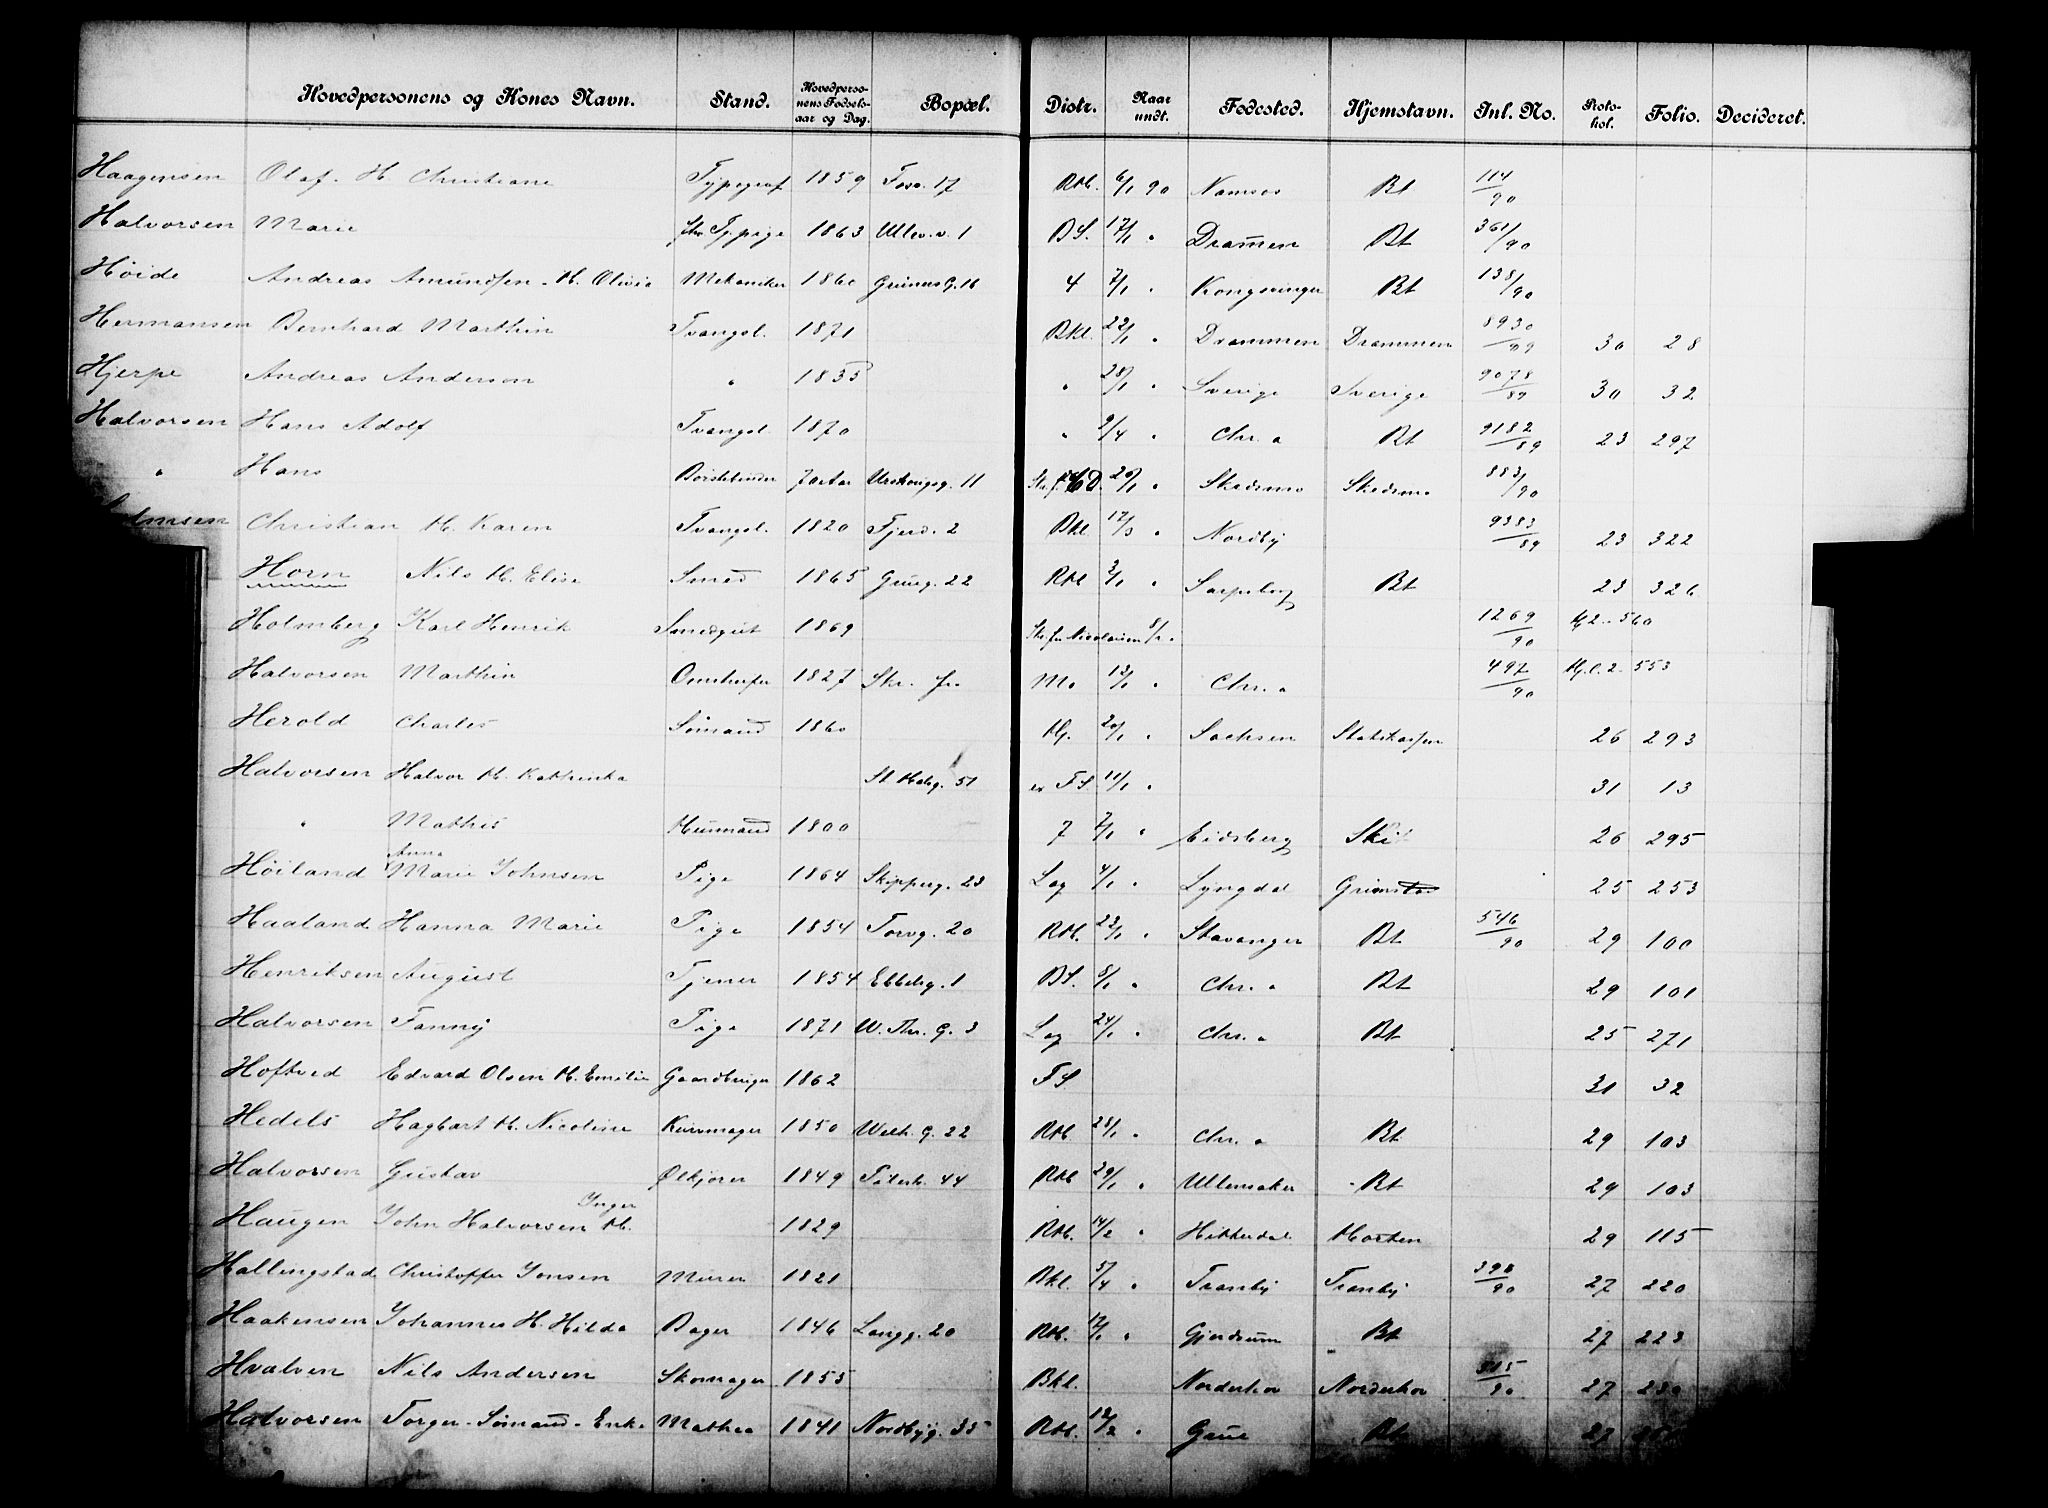 Hovedpersonens og Kones Navn. Stand. Hovedperso-nens Fødsels-aar og Dag. Bopæl. Distr. Naar undt. Fødested. Hjemstavn. Inl. No. Proto-kol. Folio. Decideret.
Haagensen Olaf. H. Christiane Typograf 1859 Foss. 17 Rtb. 6/1 90 Namsos Bt 114/90
Halvorsen Marie 1863 Ullev.v. 1 BS. 17/1 " Dramen Bt 361/90
Høide Andreas Amundsen. H. Olivia Mekaniker 1860 Grüners G. 16 4 7/1 " Kongsvinger Bt 138/90
Hermansen Bernhard Marthin Tvangsl. 1871 Bkl. 22/1 " Drammen Drammen 8930/89 30 28
Hjerpe Andreas Anderson " 1835 " 28/1 " Sverige Sverige 9078/89 30 32
Halvorsen Hans Adolf Tvangsl. 1870 " 9/4 " Chr.a Bt 9182/89 23 297
" Hans Børstebinder 70 aar 11 20/1 " Skedsmo Skedsmo 883/90
Christian H. Karen Tvangsl. 1820 Fjerd. 2 Bkl. 17/3 " Nordby 9383/89 23 322
Horn Nils H. Elise Smed 1865 Grüng. 22 Rtb 3/1 " Sarpsborg Bt 23 326
Holmberg Karl Henrik Smedgut 1869 Skr. fr. Nicolaisen 8/1 " 1269/90 Hj 2. 560
Halvorsen Marthin Omstreifer 1827 Skr. fr. Mo 13/1 " Chr.a 497/90 553
Herold Charles Sømand 1860 Hj. 20/1 " Sachsen Statskassen 26 293
Halvorsen Halvor H. Kathinka 51 FS. 11/1 " 31 13
" Mathis Huusmand 1800 7 7/1 " Eidsberg Ski 26 295
Høiland Anna Marie Johnsen Pige 1864 Skipperg. 23 Lag 4/1 " Lyngdal Grimstad 25 253
Haaland Hanna Marie Pige 1854 Torvg. 20 Rtb. 23/1 " Stavanger Bt 546/90 29 100
Henriksen August Tjener 1854 Ebbelsg. 1 BS. 8/1 " Chr.a Bt 29 101
Halvorsen Fanny Pige 1871 W. Thr. G. 3 Lag 24/1 " Chr.a Bt 25 271
Hoftved Edvard Olsen H. Emilie Gaardbruger 1862 FS 31 32
Hedels Hagbart H. Nicoline Kurvmager 1850 Welh. G. 22 Rtb 28/1 " Chr.a Bt 29 103
Halvorsen Gustav Ølkjører 1849 Piletsk. 44 Rtb 29/1 " Ullensaker Bt 29 103
Haugen John Halvorsen H. Inger 1829 Rtb. 14/2 " Hitterdal Horten 29 115
Hallingstad Christoffer Jonsen Murer 1821 Bkl. 5/4 " Tranby Tranby 398/90 27 220
Haakensen Johannes H. Hilda Bager 1846 Langg. 20 Rtb. 17/1 " Gjerdrum Bt 27 223
Hvalven Nils Andersen Skomager 1855 Bkl. Norderhov Norderhov 315/90 27
Halvorsen Torger. Sømand. Enke Mathea 1841 Nordbyg. 35 Rtb. 12/2 " Grue Bt 27